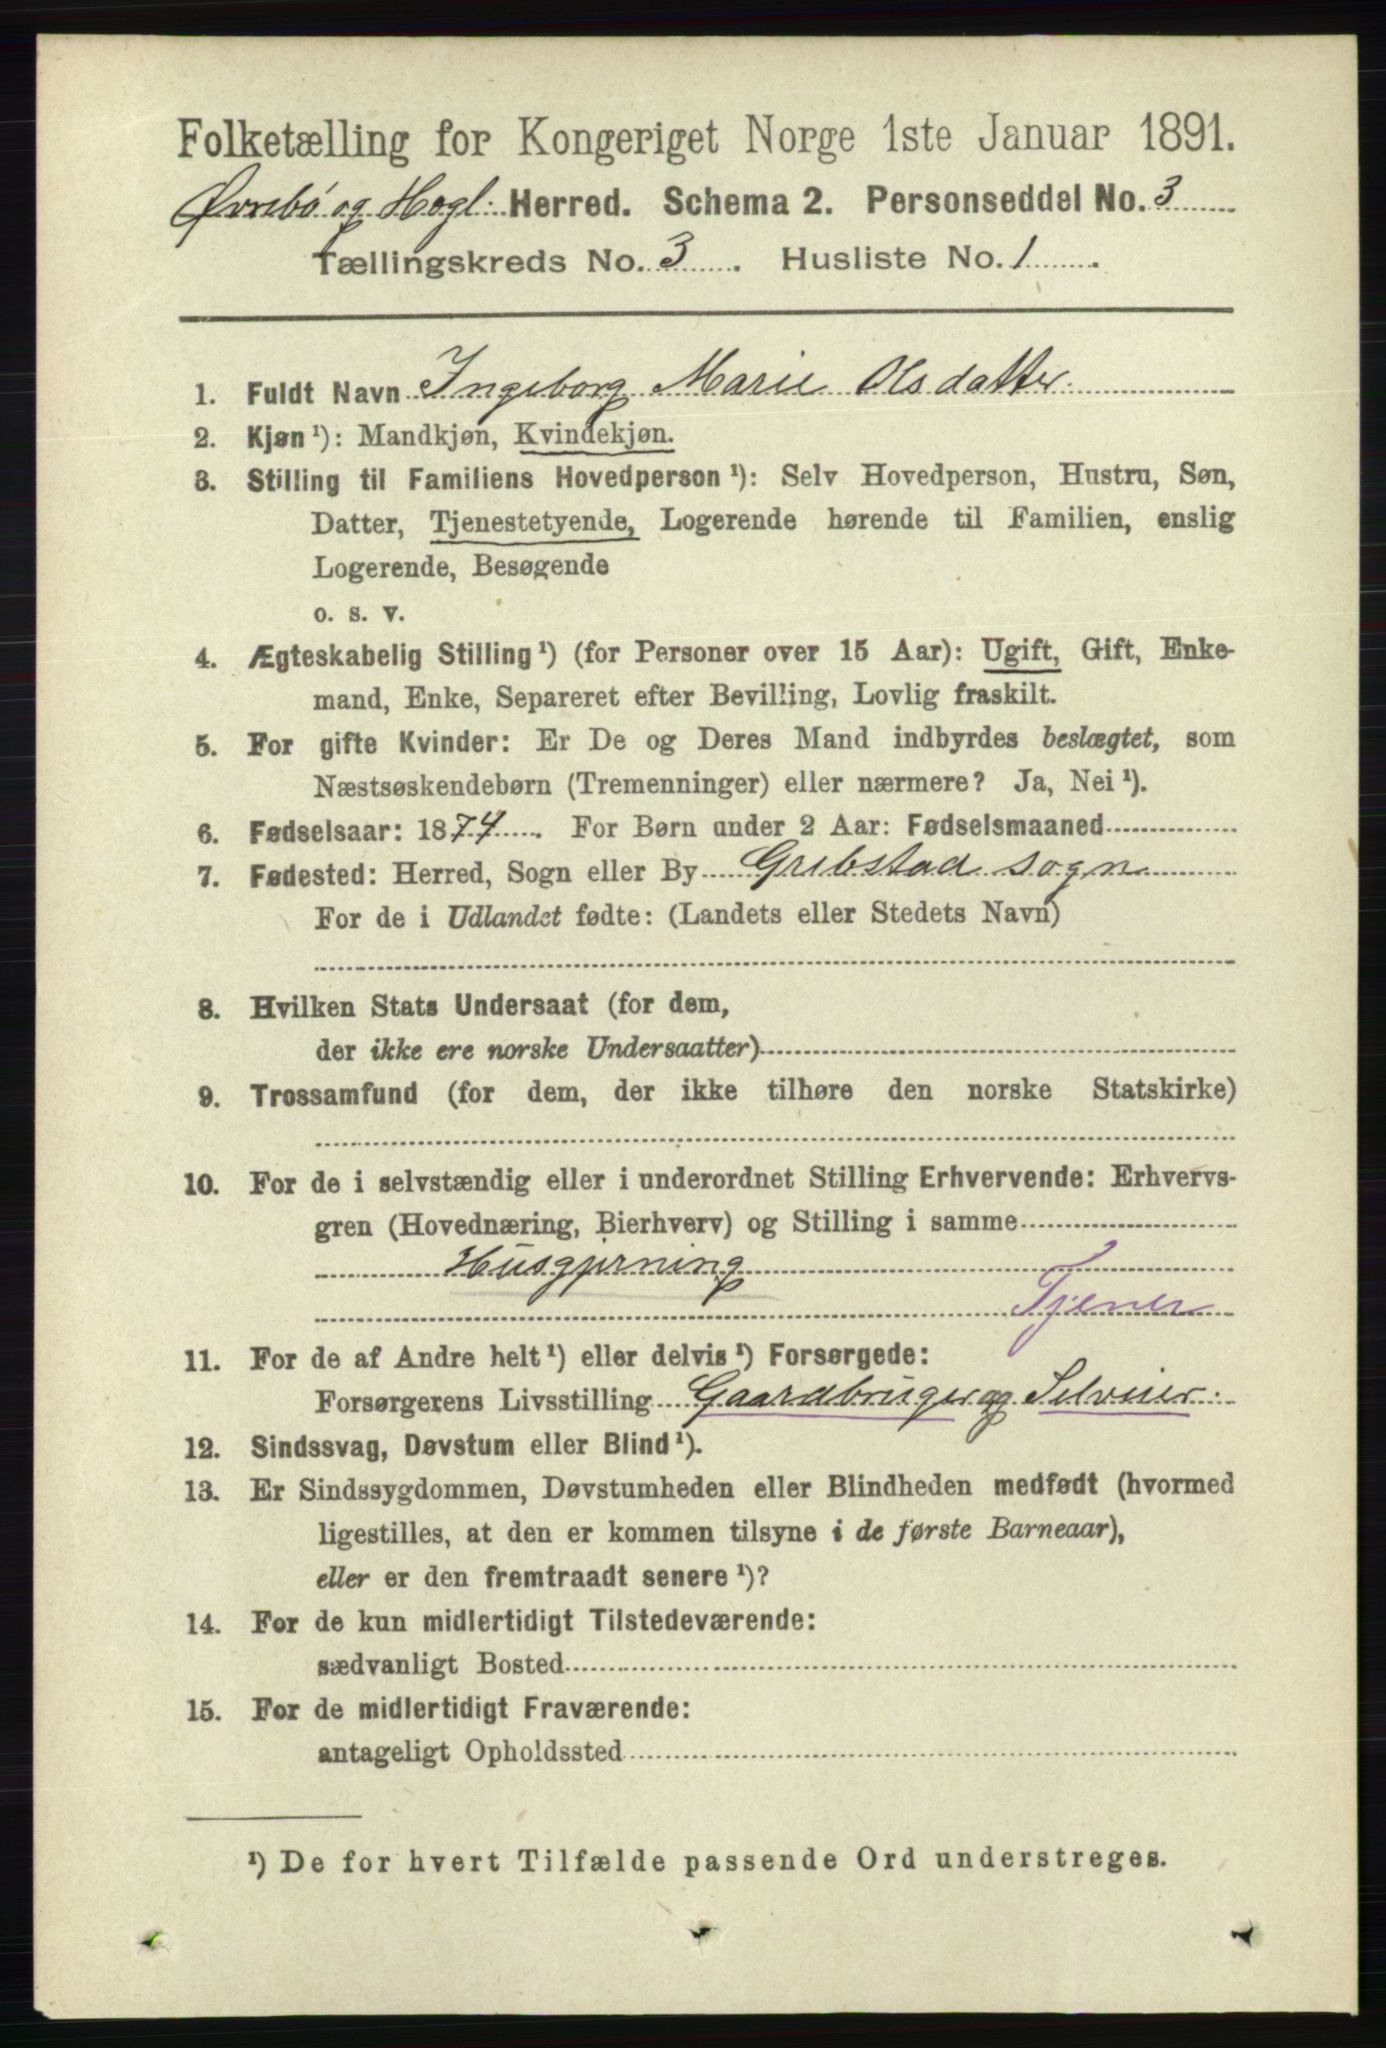 Folketælling for Kongeriget Norge 1ste Januar 1891.
Øvrebö og Hægl: Herred. Schema 2. Personseddel No. 3
Tællingskreds No. 3. Husliste No. 1.
1. Fuldt Navn Ingeborg Marie Olsdatter.
2. Kjøn¹): Mandkjøn, Kvindekjøn.
3. Stilling til Familiens Hovedperson¹): Selv Hovedperson, Hustru, Søn,
Datter, Tjenestetyende, Logerende hørende til Familien, enslig
Logerende, Besøgende
o. s. v.
4. Ægteskabelig Stilling¹) (for Personer over 15 Aar): Ugift, Gift, Enke-
mand, Enke, Separeret efter Bevilling, Lovlig fraskilt.
5. For gifte Kvinder: Er De og Deres Mand indbyrdes beslægtet, som
Næstsøskendebørn (Tremenninger) eller nærmere? Ja, Nei¹).
6. Fødselsaar: 1874. For Børn under 2 Aar: Fødselsmaaned
7. Fødested: Herred, Sogn eller By Grebstad sogn
For de i Udlandet fødte: (Landets eller Stedets Navn)
8. Hvilken Stats Undersaat (for dem,
der ikke ere norske Undersaatter)
9. Trossamfund (for dem, der ikke tilhøre den norske Statskirke)
10. For de i selvstændig eller i underordnet Stilling Erhvervende: Erhvervs-
gren (Hovednæring, Bierhverv) og Stilling i samme
Husgjerning
Tjener
11. For de af Andre helt¹) eller delvis¹) Forsørgede:
Forsørgerens Livsstilling Gaardbruger og Selveier.
12. Sindssvag, Døvstum eller Blind¹).
13. Er Sindssygdommen, Døvstumheden eller Blindheden medfødt (hvormed
ligestilles, at den er kommen tilsyne i de første Barneaar),
eller er den fremtraadt senere¹)?
14. For de kun midlertidigt Tilstedeværende:
sædvanligt Bosted
15. For de midlertidigt Fraværende:
antageligt Opholdssted
¹) De for hvert Tilfælde passende Ord understreges.